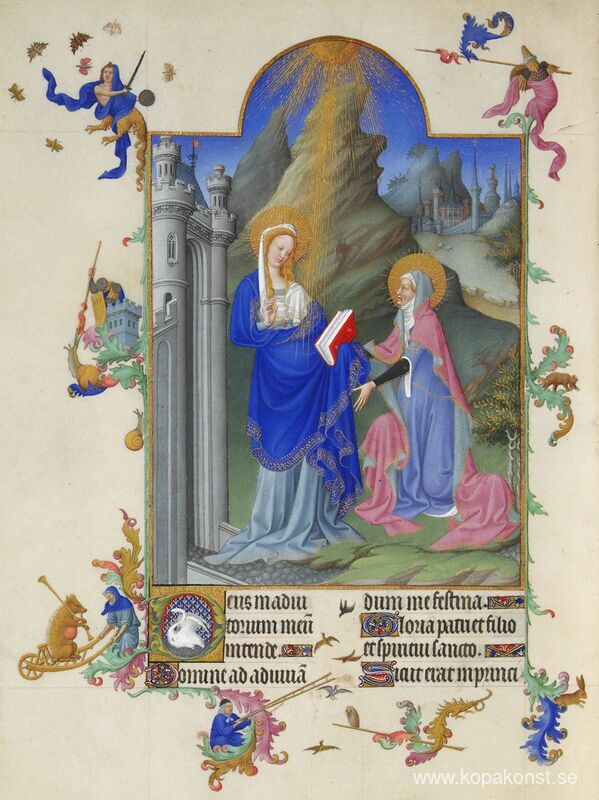 Deus in adiu
torium meū
intende.
Domine ad adiuuā
dum me festina.
Gloria patri et filio
et spiritui sancto.
Sicut erat in princi
www.kopakonst.se